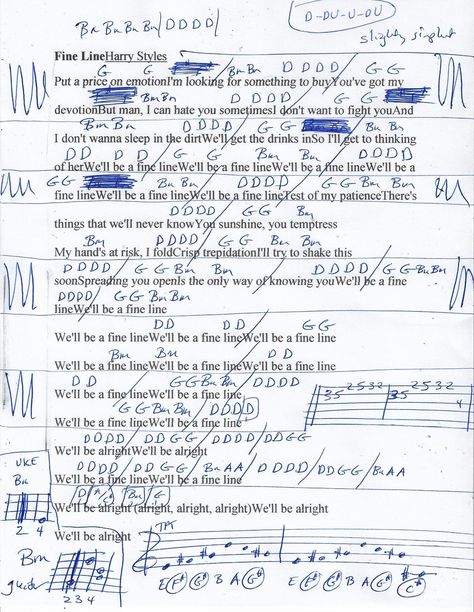 Bm Bm Bm Bm / D D D D /
D-DU-U-DU
slightly
Fine LineHarry Styles
G G Bm Bm D D D D G G
Put a price on emotionI'm looking for something to buyYou've got my
Bm Bm D D D D G G
devotionBut man, I can hate you sometimesI don't want to fight youAnd
Bm Bm D D D D G G Bm Bm
I don't wanna sleep in the dirtWe'll get the drinks inSo I'll get to thinking
D D D D G G Bm Bm D D D D
of herWe'll be a fine lineWe'll be a fine lineWe'll be a fine lineWe'll be a
G G Bm Bm D D D D G G Bm Bm
fine lineWe'll be a fine lineWe'll be a fine lineTest of my patienceThere's
D D D D G G Bm
things that we'll never knowYou sunshine, you temptress
Bm D D D D G G Bm Bm
My hand's at risk, I foldCrisp trepidationI'll try to shake this
D D D D G G Bm Bm D D D D / G G Bm Bm
soonSpreading you openIs the only way of knowing youWe'll be a fine
D D D D G G Bm Bm
lineWe'll be a fine line
D D D D G G
We'll be a fine lineWe'll be a fine lineWe'll be a fine line
Bm Bm D D D D
We'll be a fine lineWe'll be a fine line
D D G G Bm Bm D D D D
We'll be a fine lineWe'll be a fine line
35 2532 35 2532 4
G G Bm Bm D D D D
We'll be a fine lineWe'll be a fine line
D D D D / D D G G / D D D D / D D G G
We'll be alrightWe'll be alright
D D D D / D D G G / Bm A A / D D D D / D D G G / Bm A A
We'll be a fine lineWe'll be a fine line
UKE
Bm
2 4
D / A / Bm / G
We'll be alright (alright, alright, alright)We'll be alright
We'll be alright
TPT
Bm
2 3 4
E F# C# B A G# E F# C# B A G# C#